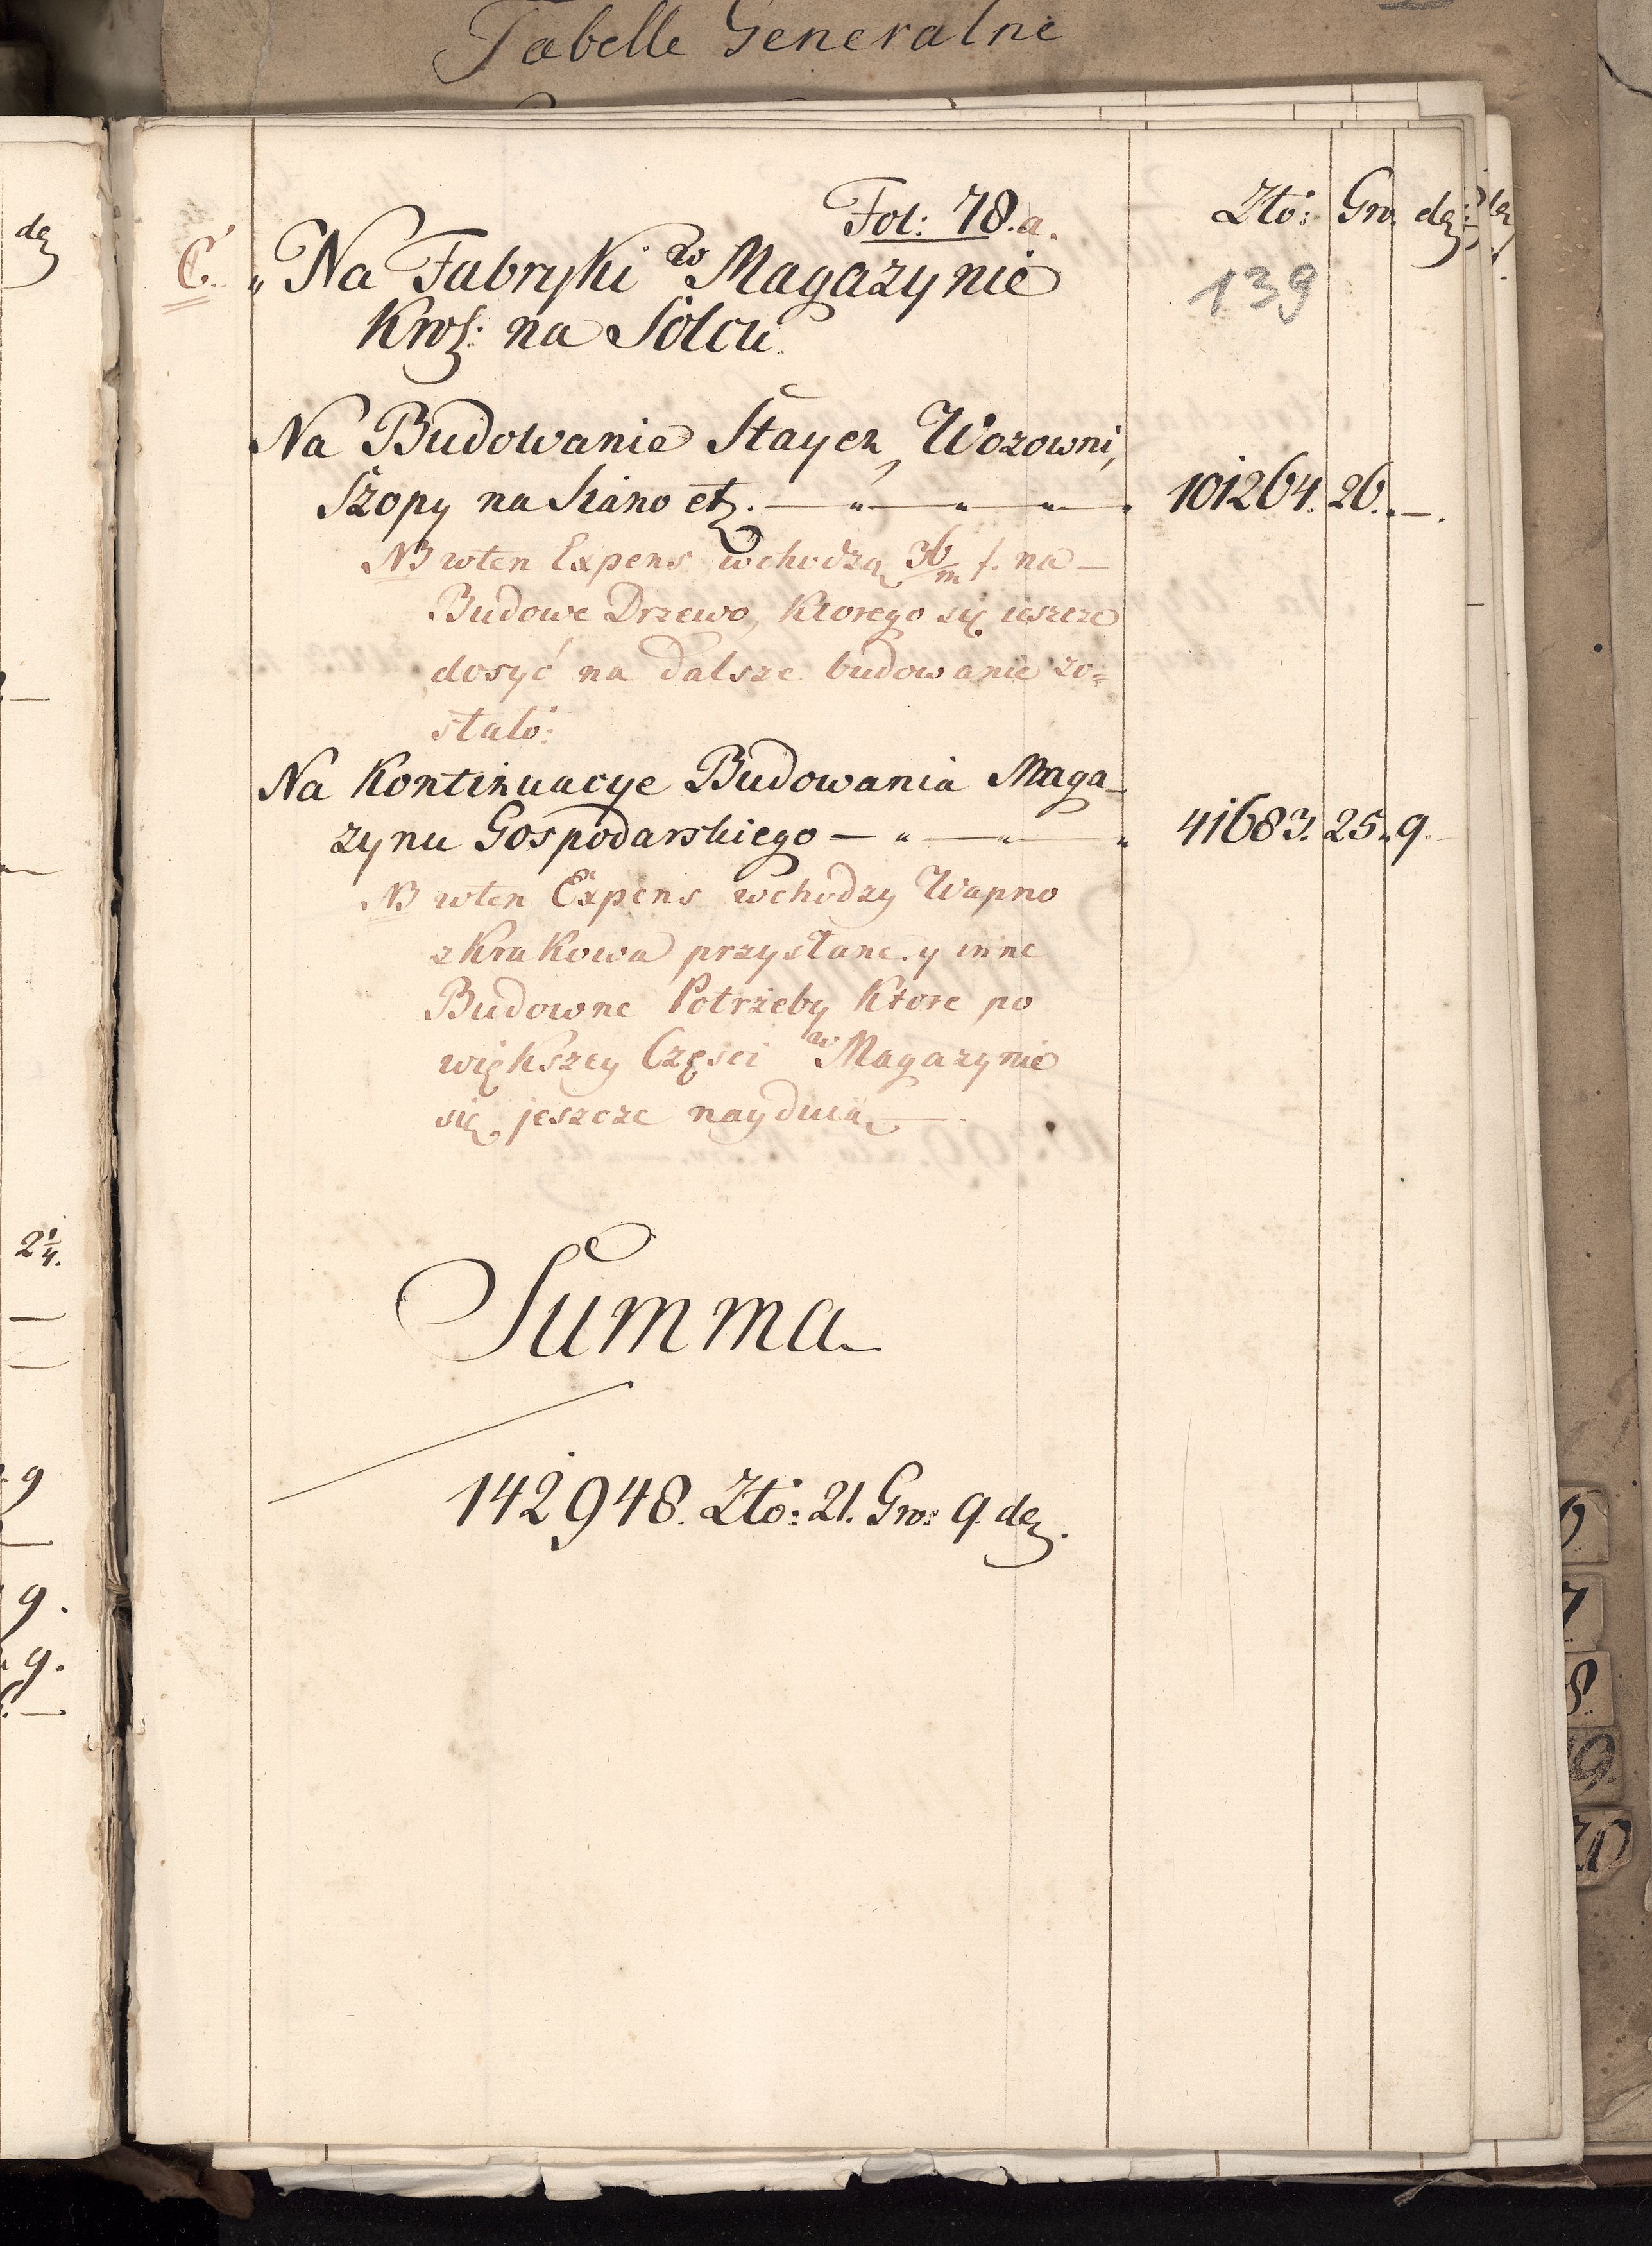 Tabelle Generalne
de
2 1/4.
9
9.
9.
Fol: 78.a.
Złо: Gro. de
C. „ Na Fabryki w Magazynie
139
Krol: na Solcu.
Na Budowanie Stayen, Wozowni,
Szopy na Siano etz. — „ — „ — „ — „ 101264. 26. „ —.
NB wten Expens wchodzą 36/m f. na —
Budowe Drzewo, Ktorego się ieszcze
dosyć na dalsze budowanie zo=
stało:
Na Kontinuacye Budowania Maga-
zynu Gospodarskiego — „ — „ — „ 41683. 25. 9.
NB wten Expens wchodzy Wapno
z Krakowa przysłane y inne
Budowne Potrzeby Ktore po
większey Częsci w Magazynie
się jeszcze nayduią —.
Summa
142948. Złо: 21. Gro: 9. de.
7
8.
19.
20